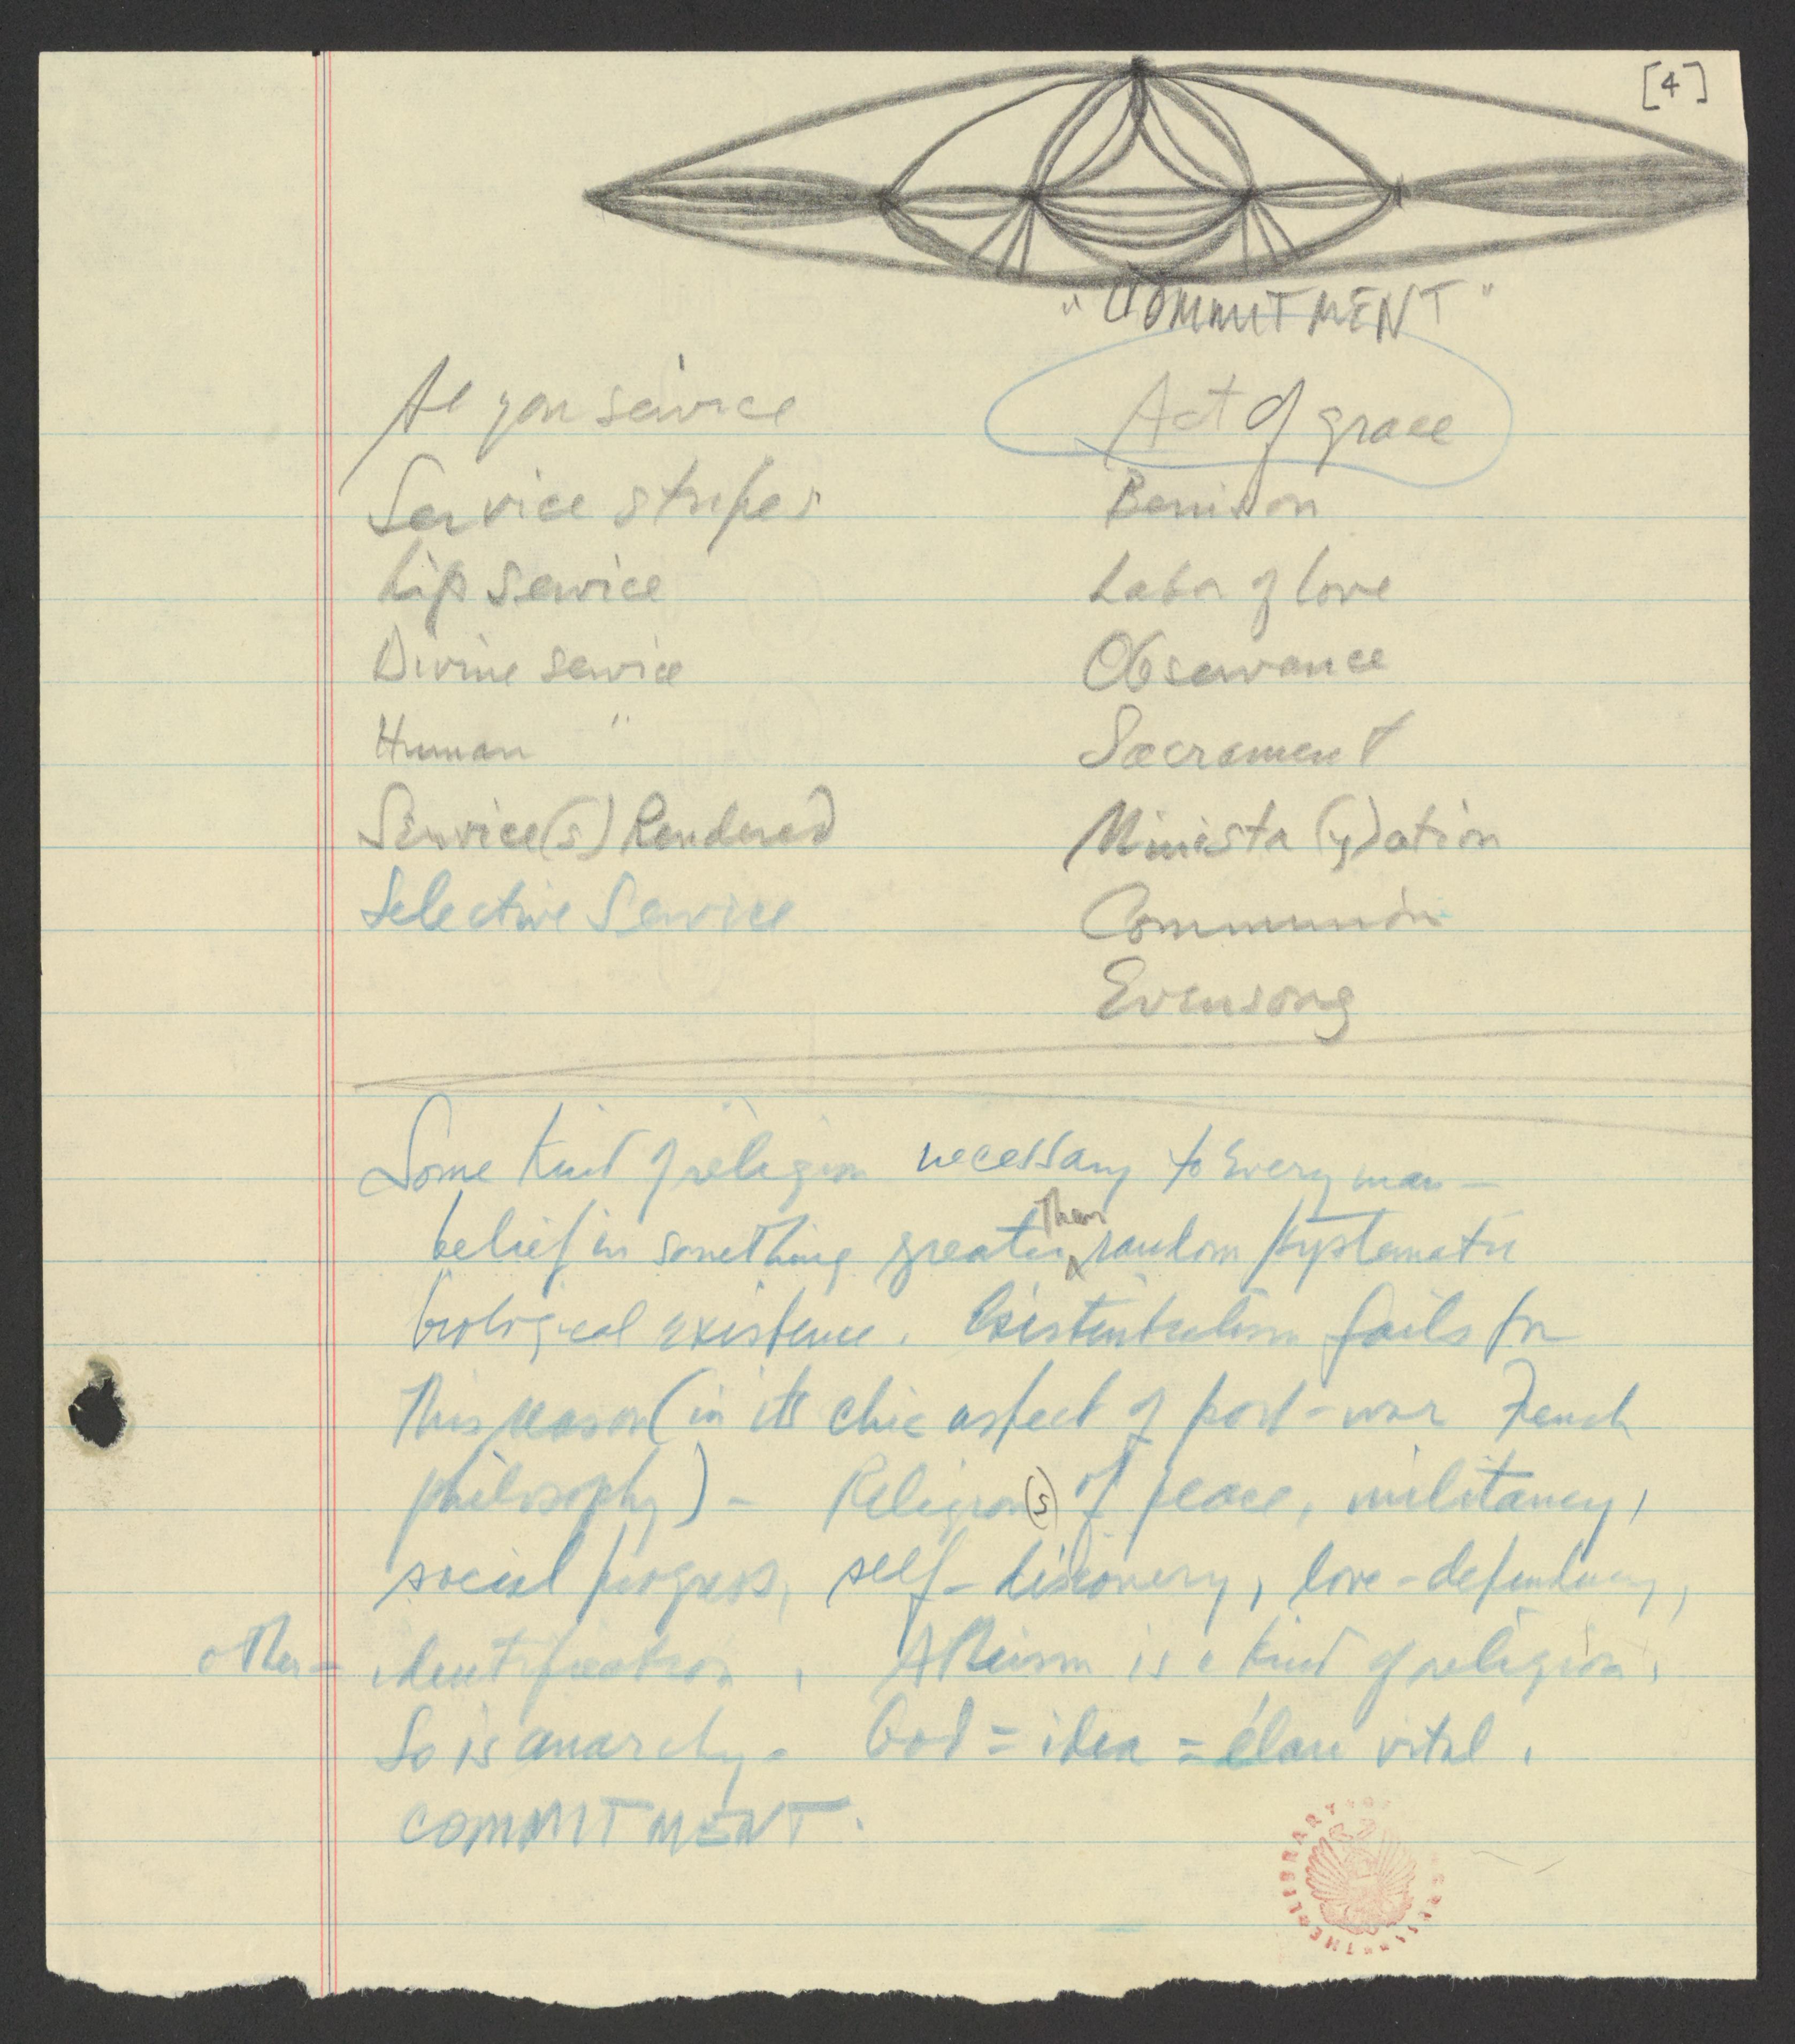 [4]
"COMMITMENT"
At you service
Service stripes
Lip service
Divine service
Human "
Service(s) Rendered
Selective Service
Act of grace
Benison
Labor of love
Observance
Sacrament
Ministra(y)ation
Communion
Evensong
Some kind of religion necessary to every man —
belief in something greater than random/systematic
biological existence. Existentialism fails for
this reason (in its chic aspect of post-war French
philosophy) — Religion(s) of peace, militancy,
social progress, self-discovery, love-dependency,
other-identification. Atheism is a kind of religion.
So is anarchy. God = idea = élan vital.
COMMITMENT.
THE LIBRARY